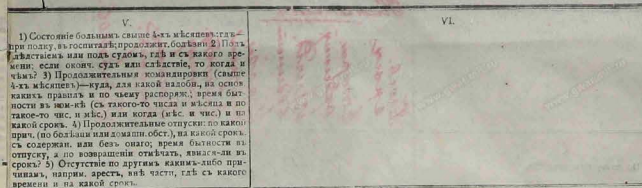 V.
VI.
1) Состояніе больнымъ свыше 4-хъ мѣсяцевъ: гдѣ—
при полку, въ госпиталѣ; продолжит. болѣзни 2) Подъ
слѣдствіемъ или подъ судомъ, гдѣ и съ какого вре-
мени; если оконч. судъ или слѣдствіе, то когда и
чѣмъ? 3) Продолжительныя командировки (свыше
4-хъ мѣсяцевъ)—куда, для какой надобн., на основ.
какихъ правилъ и по чьему распоряж.; время быт-
ности въ ком-кѣ (съ такого-то числа и мѣсяца и по
такое-то чис. и мѣс.) или когда (мѣс. и чис.) и на
какой срокъ. 4) Продолжительные отпуски: по какой
прич. (по болѣзни или домашн. обст.), на какой срокъ,
съ содержан. или безъ онаго; время бытности въ
отпуску, а по возвращеніи отмѣчать, явился-ли въ
срокъ? 5) Отсутствіе по другимъ какимъ-либо при-
чинамъ, наприм. арестъ, внѣ части, гдѣ съ какого
времени и на какой срокъ.